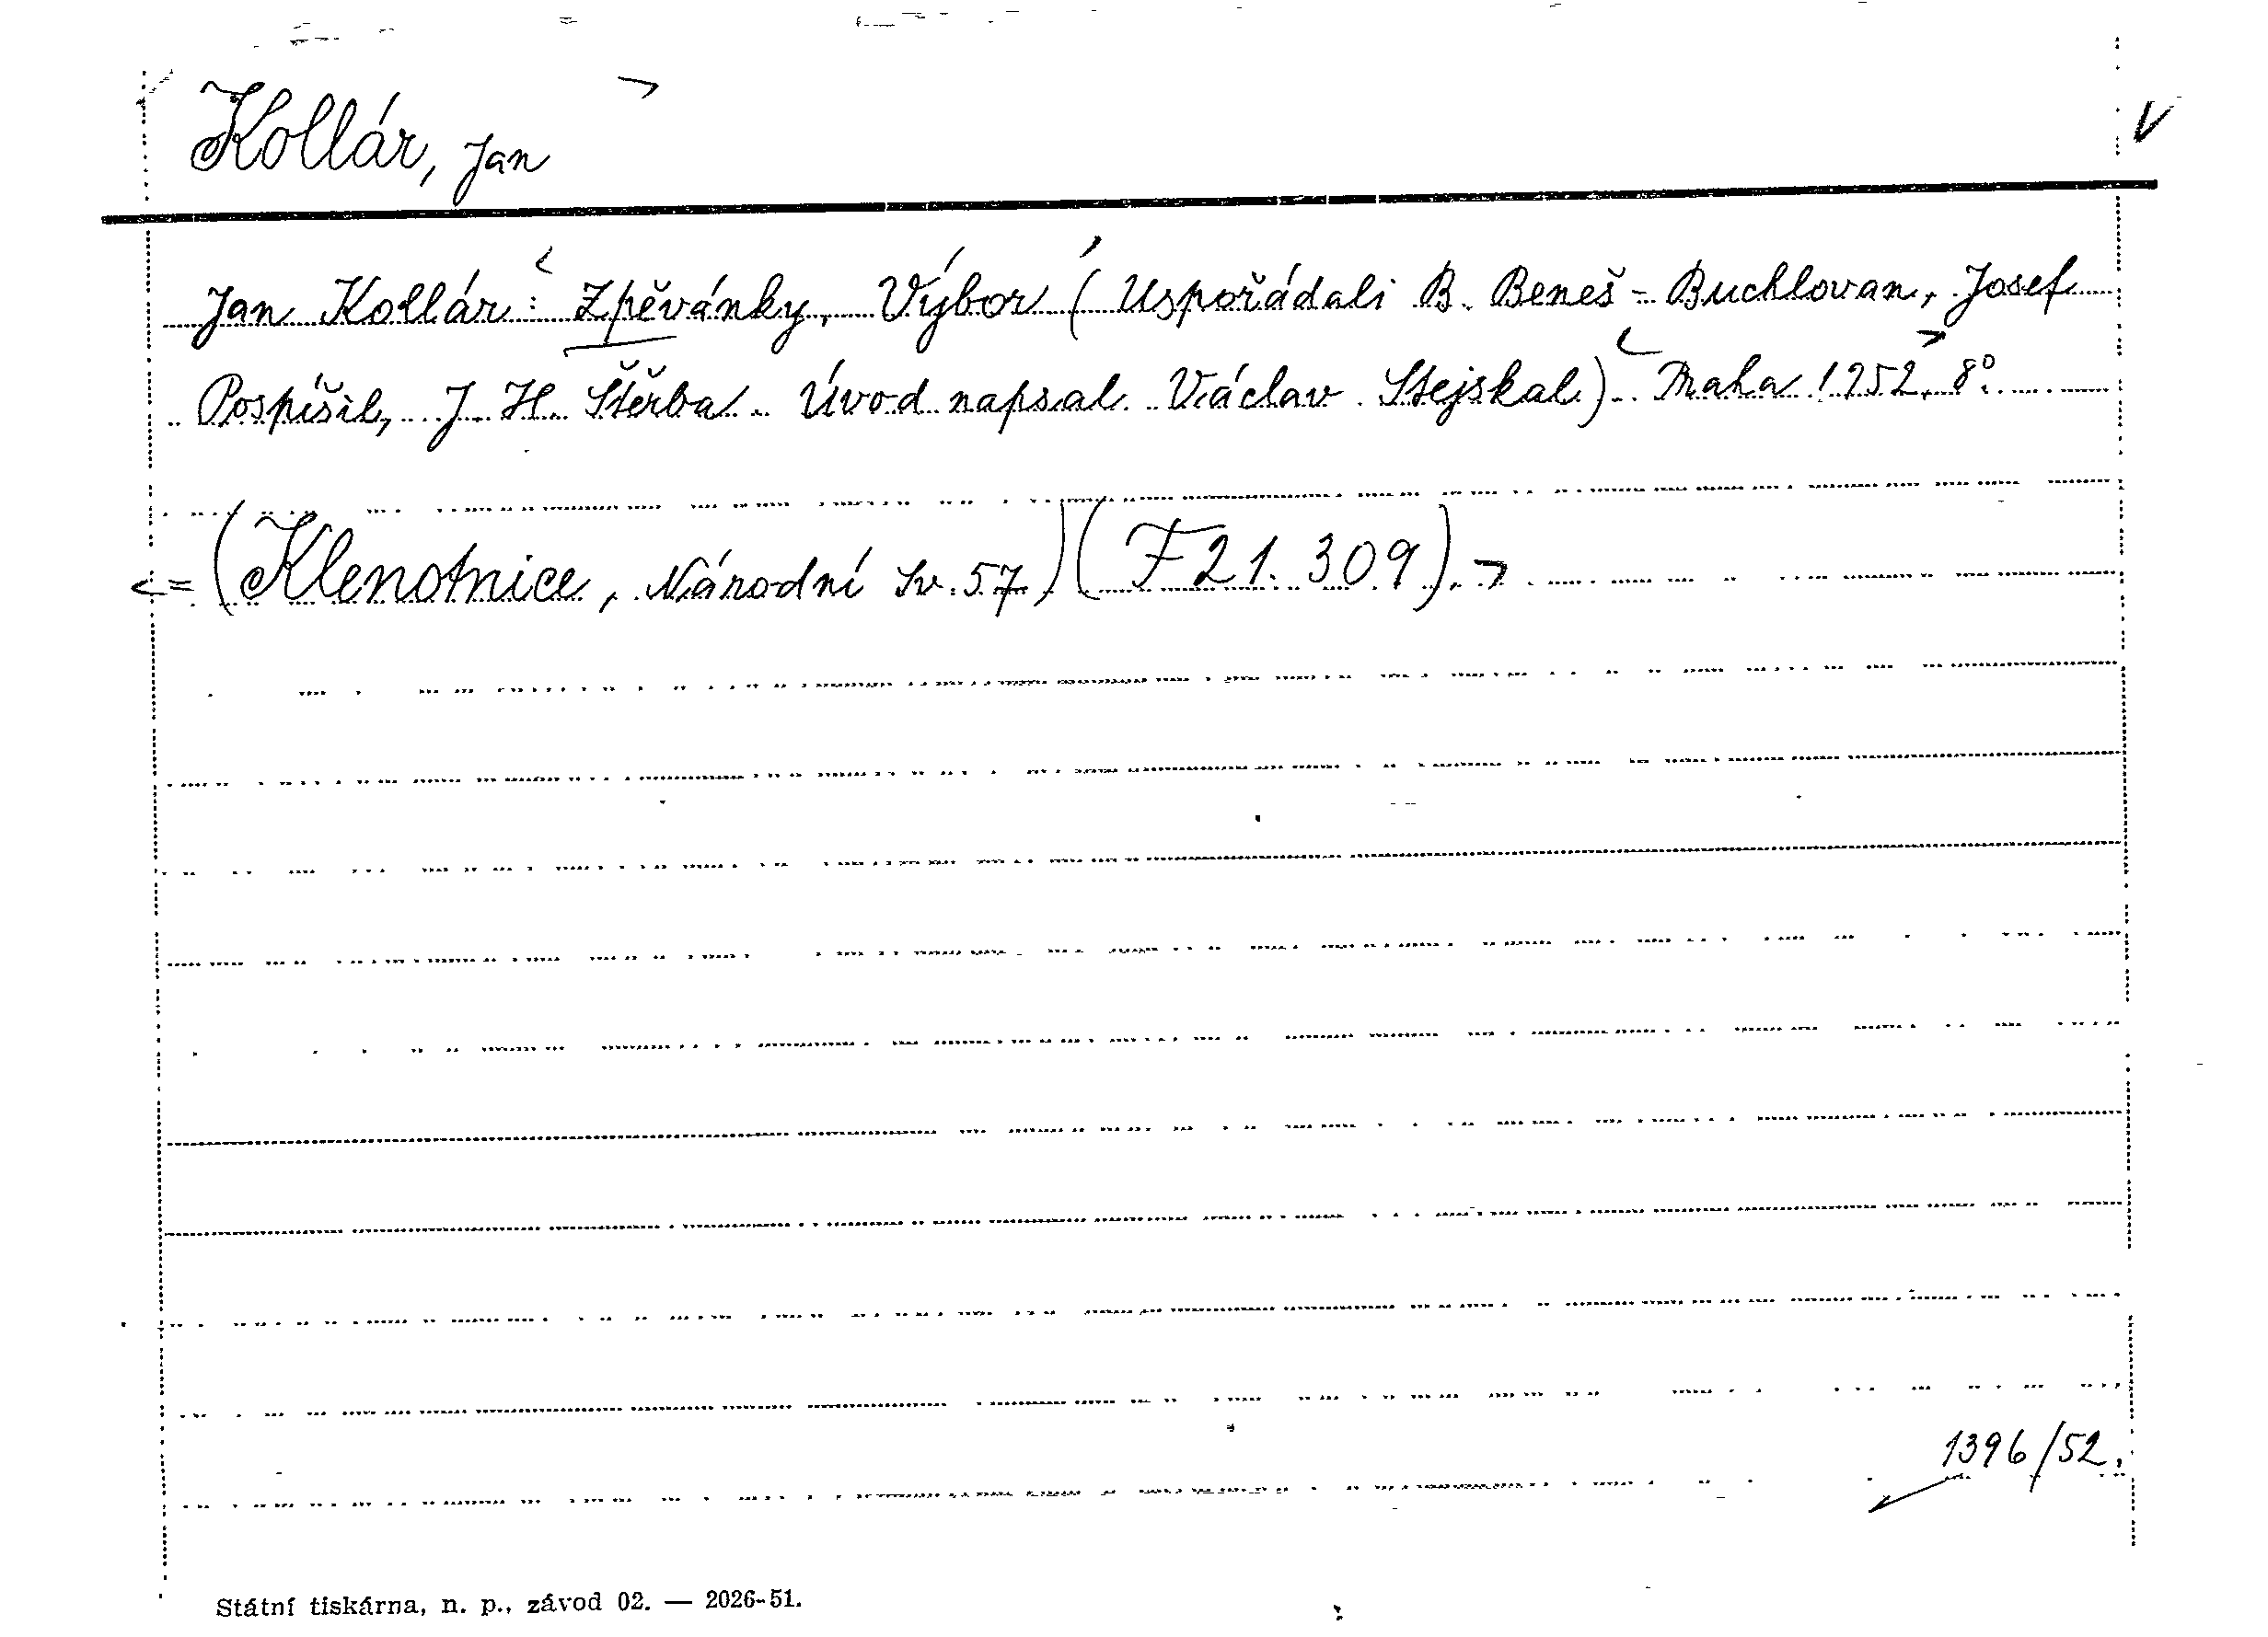 Kollár, Jan
V
Jan Kollár: Zpěvánky, Výbor (Uspořádali B. Beneš-Buchlovan, Josef
Pospíšil, J. H. Štěrba. Úvod napsal Václav Stejskal). Praha 1952, 8°.
= (Klenotnice, Národní Sv. 57) (F 21.309).
1396/52.
Státní tiskárna, n. p., závod 02. — 2026-51.